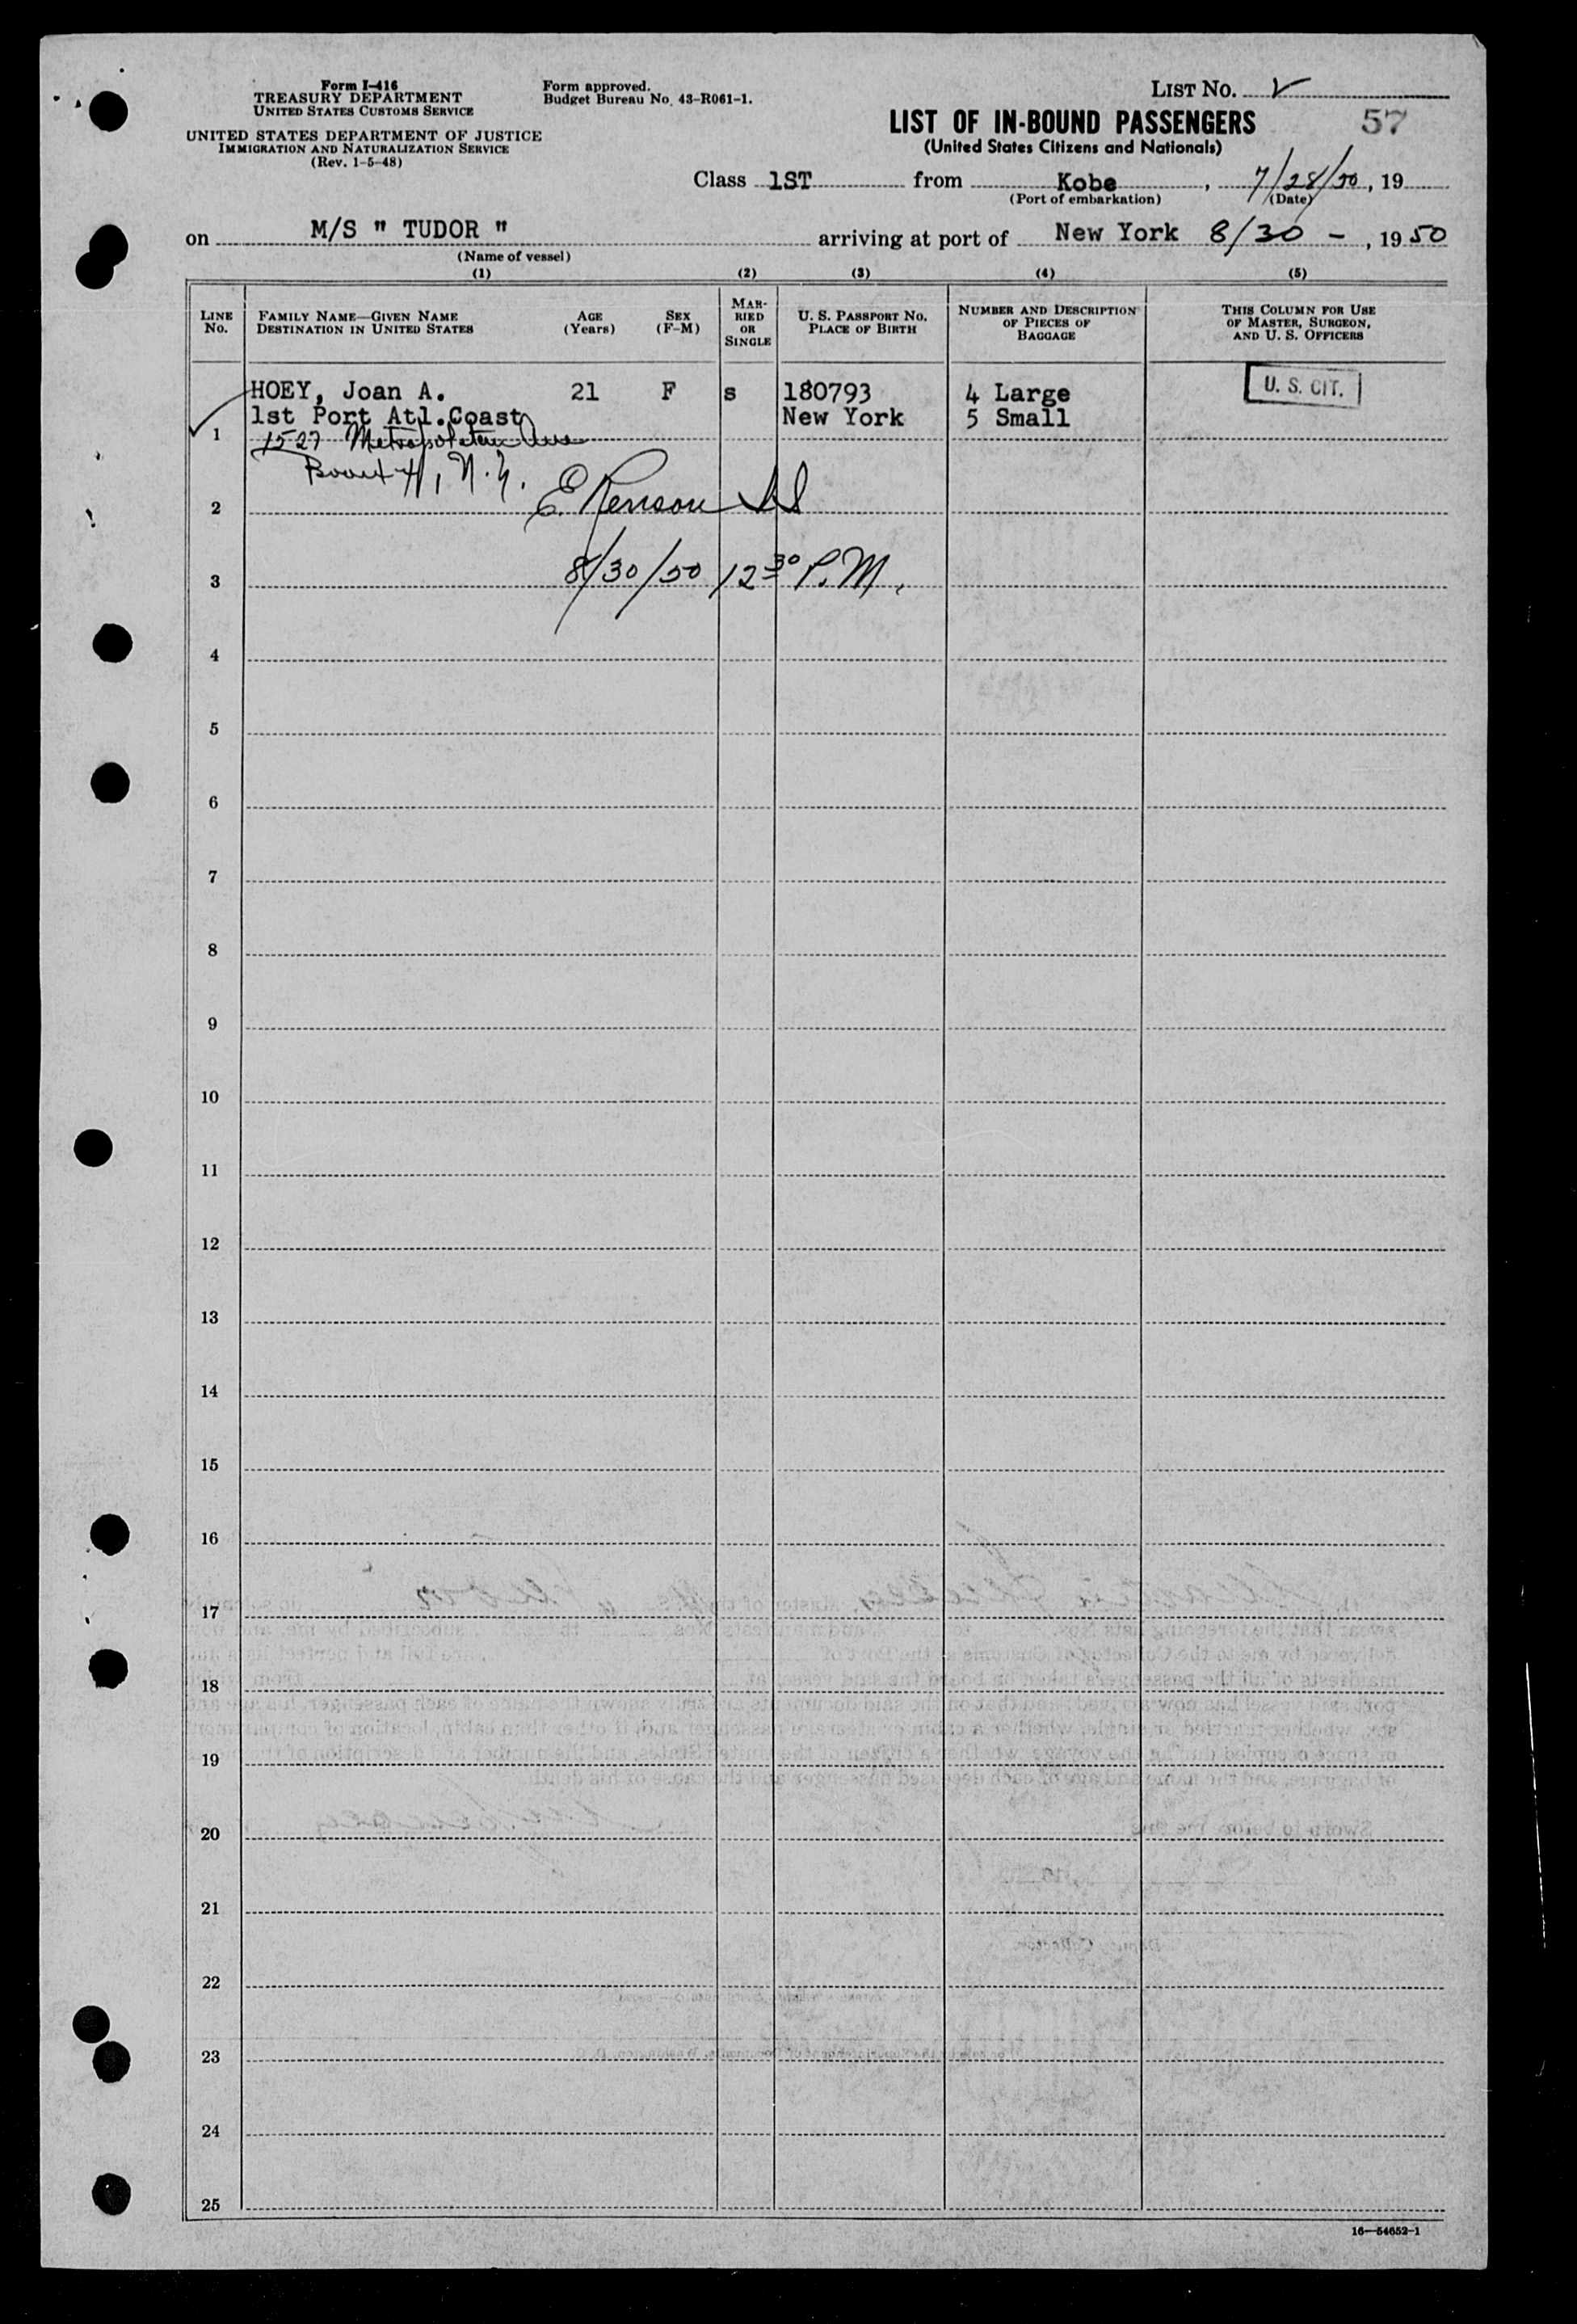 Form I-416
TREASURY DEPARTMENT
UNITED STATES CUSTOMS SERVICE
UNITED STATES DEPARTMENT OF JUSTICE
IMMIGRATION AND NATURALIZATION SERVICE
(Rev. 1-5-48)
Form approved.
Budget Bureau No. 43-R061-1.
LIST No.
LIST OF IN-BOUND PASSENGERS
57
(United States Citizens and Nationals)
Class 1ST from Kobe, 7/28/50, 19
(Port of embarkation) (Date)
on M/S " TUDOR " arriving at port of New York 8/30 -, 1950
(Name of vessel)
(1) (2) (3) (4) (5)
LINE No.
FAMILY NAME—GIVEN NAME
DESTINATION IN UNITED STATES
AGE (Years)
SEX (F-M)
MAR-
RIED
OR
SINGLE
U. S. PASSPORT No.
PLACE OF BIRTH
NUMBER AND DESCRIPTION
OF PIECES OF
BAGGAGE
THIS COLUMN FOR USE
OF MASTER, SURGEON,
AND U. S. OFFICERS
HOEY, Joan A. 21 F s 180793 4 Large U. S. CIT.
1st Port Atl.Coast New York 5 Small
1 1527 Metropolitan Ave
N.Y.
2
3 8/30/50 12 30 P.M.
4
5
6
7
8
9
10
11
12
13
14
15
16
17
18
19
20
21
22
23
24
25
16—54652-1